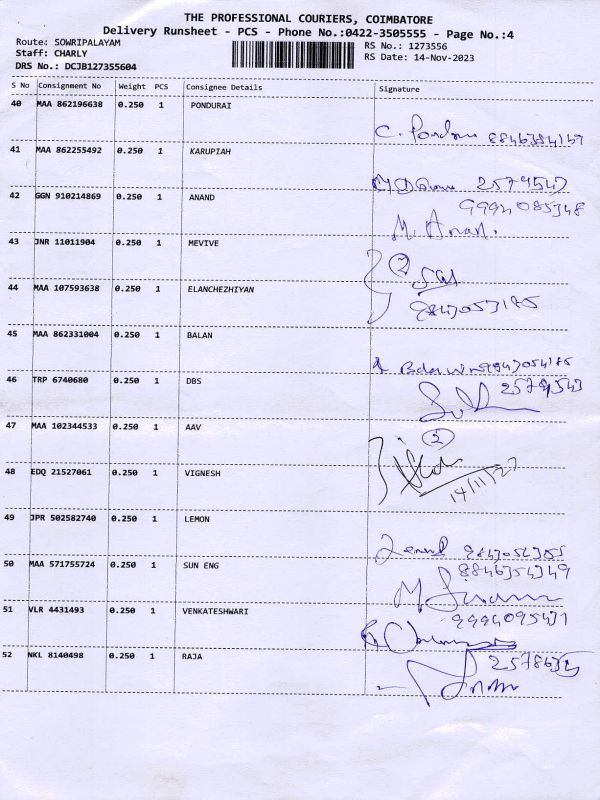 THE PROFESSIONAL COURIERS, COIMBATORE
Delivery Runsheet - PCS - Phone No.:0422-3505555 - Page No.:4
Route: SOWRIPALAYAM
Staff: CHARLY
DRS No.: DCJB127355604
RS No.: 1273556
RS Date: 14-Nov-2023
S No Consignment No Weight PCS Consignee Details Signature
40 MAA 862196638 0.250 1 PONDURAI
41 MAA 862255492 0.250 1 KARUPIAH
2579547
42 GGN 910214869 0.250 1 ANAND
9994085348
M. Anan.
43 JNR 11011904 0.250 1 MEVIVE
2
44 MAA 107593638 0.250 1 ELANCHEZHIYAN
9843053175
45 MAA 862331004 0.250 1 BALAN
46 TRP 6740680 0.250 1 DBS
2579543
47 MAA 102344533 0.250 1 AAV
2
48 EDQ 21527061 0.250 1 VIGNESH
14/11/23
49 JPR 502582740 0.250 1 LEMON
50 MAA 571755724 0.250 1 SUN ENG
8846354349
51 VLR 4431493 0.250 1 VENKATESHWARI
9994095431
52 NKL 8140498 0.250 1 RAJA